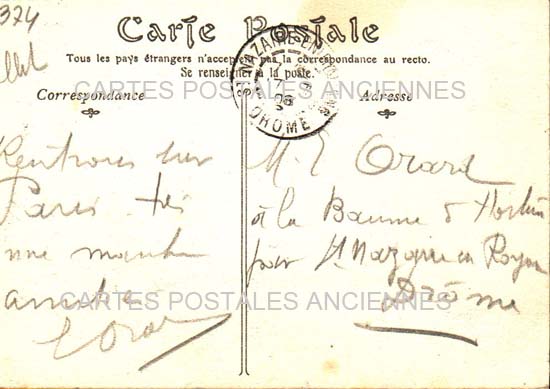 324
Carte Postale
Tous les pays étrangers n'acceptent pas la correspondance au recto.
Se renseigner à la poste.
Correspondance
Adresse
ST NAZAIRE-EN-ROYANS
DROME
CARTES POSTALES ANCIENNES
Rentrons sur
Paris
une
M. E Orard
à la Baume d'Hostun
par St Nazaire en Royans
Drôme
CARTES POSTALES ANCIENNES